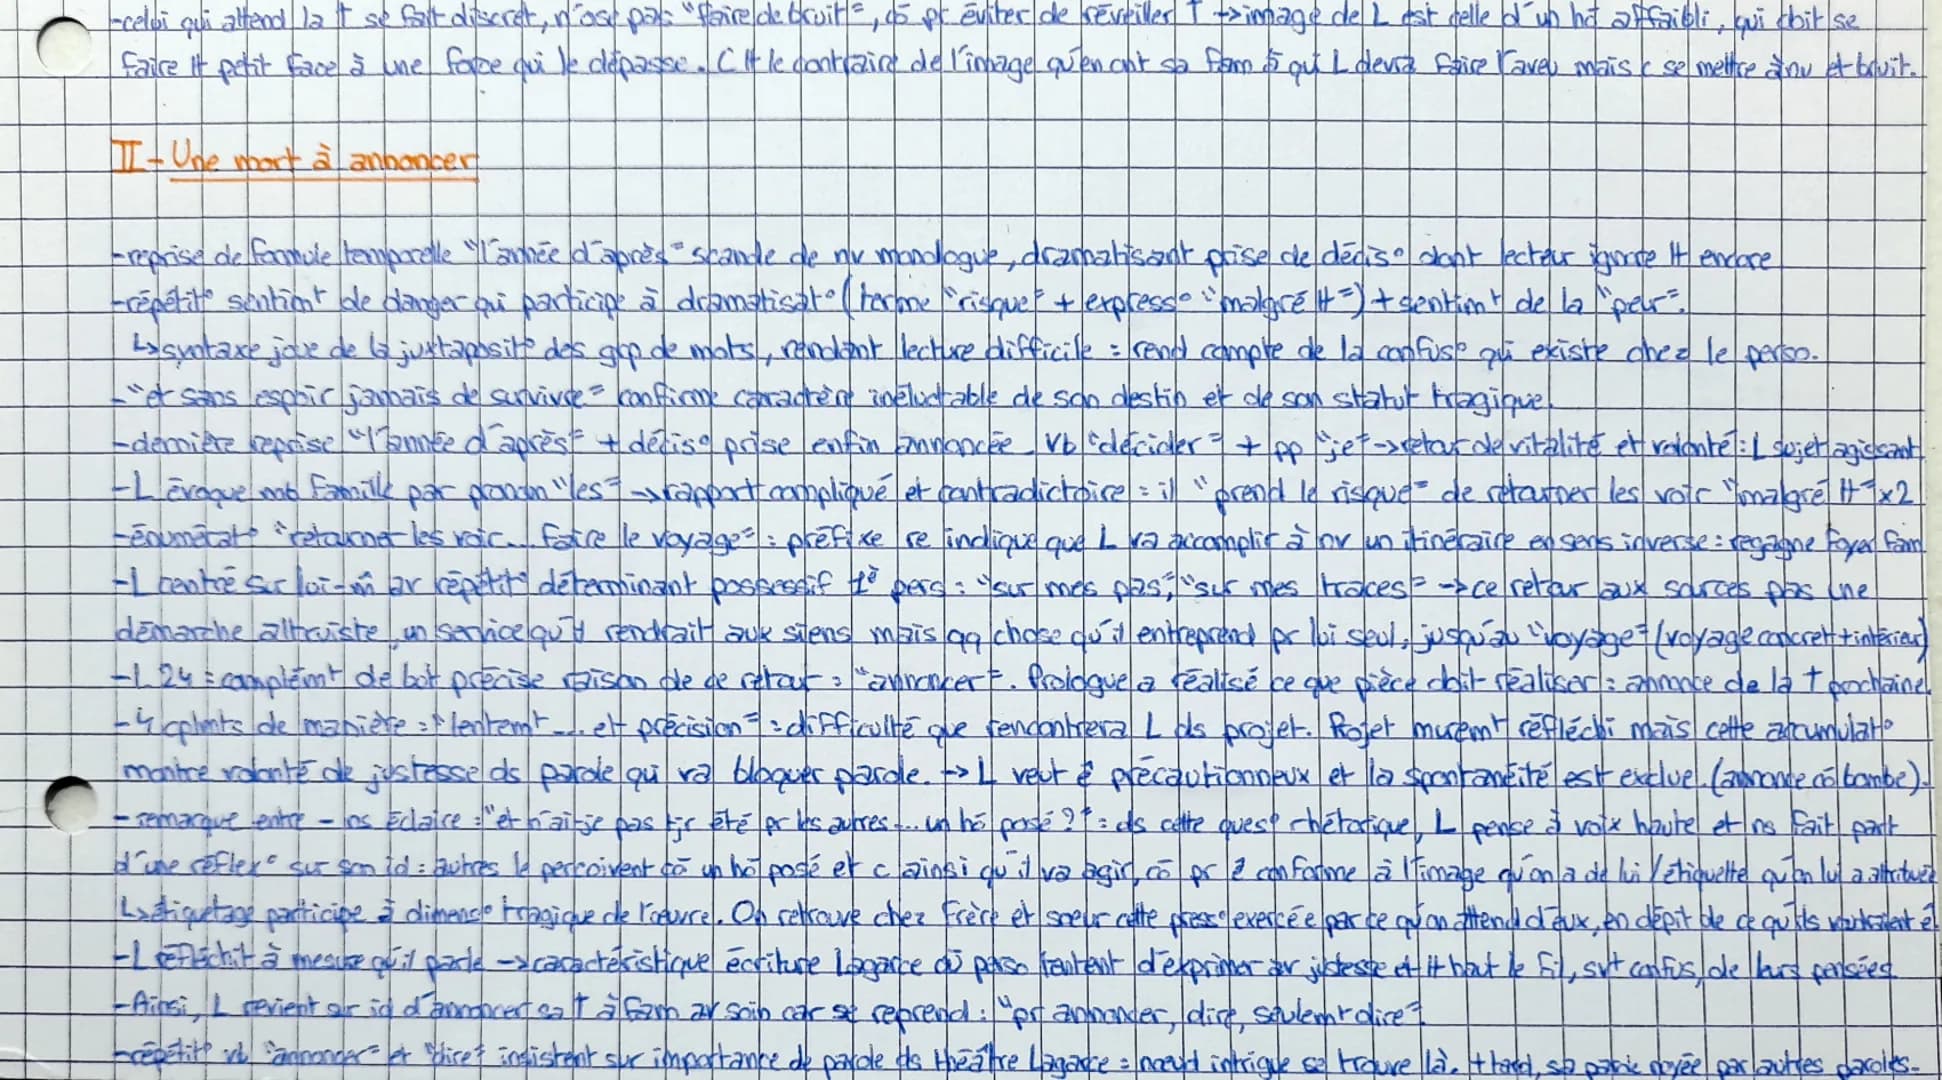 -celui qui attend la † se fait discret, n'ose pas "faire de bruit", cō pr éviter de réveiller † → image de L est celle d'un hō affaibli, qui doit se
faire tt petit face à une force qui le dépasse. C tt le contraire de l'image qu'en ont sa fam à qui L devra faire l'aveu mais c se mettre à nu et bruit.
II - Une mort à annoncer
-reprise de formule temporelle "l'année d'après" scande de nv monologue, dramatisant prise de décis° dont lecteur ignore tt encore
-répétit° sentimt de danger qui participe à dramatisat° (terme "risque" + express° "malgré tt") + sentimt de la "peur".
↳ syntaxe joue de la juxtaposit° des grp de mots, rendant lecture difficile = rend compte de la confus° qui existe chez le perso.
-"et sans espoir jamais de survivre" confirme caractère inéluctable de son destin et de son statut tragique.
-dernière reprise "l'année d'après" + décis° prise enfin annoncée vb "décider" + pp "je" → retour de vitalité et volonté : L sujet agissant
-L évoque mb famille par pronom "les" → rapport compliqué et contradictoire = il "prend le risque" de retourner les voir "malgré tt" x2
-énumérat° "retourner les voir... faire le voyage" : préfixe re indique que L va accomplir à nv un itinéraire en sens inverse : regagne foyer fam
-L centré sur lui-m̂ av répétit° déterminant possessif 1è pers : "sur mes pas", "sur mes traces" → ce retour aux sources pas une
démarche altruiste, un service qu'il rendrait aux siens mais qq chose qu'il entreprend pr lui seul, jusqu'au "voyage" (voyage concret + intérieur)
-L 24 : complémt de but précise raison de ce retour : "annoncer". Prologue a réalisé ce que pièce doit réaliser : annonce de la † prochaine.
-4 cplmts de manière : "lentemt ... et précision" : difficulté que rencontrera L ds projet. Projet muremt réfléchi mais cette accumulat°
montre volonté de justesse ds parole qui va bloquer parole. → L veut ê précautionneux et la spontanéité est exclue. (annonce cō bombe).
-remarque entre - ns éclaire : "et n'ai-je pas tjr été pr les autres ... un hō posé ?" : ds cette quest° rhétorique, L pense à voix haute et ns fait part
d'une réflex° sur son id : autres le perçoivent cō un hō posé et c ainsi qu'il va agir, cō pr ê conforme à l'image qu'on a de lui / étiquette qu'on lui a attribuée
↳ étiquetage participe à dimens° tragique de l'œuvre. On retrouve chez frère et sœur cette press° exercée par ce qu'on attend d'eux, en dépit de ce qu'ils voudraient ê
-L réfléchit à mesure qu'il parle → caractéristique écriture Lagarce où perso tentent d'exprimer av justesse et tt haut le fil, svt confus, de leurs pensées.
-Ainsi, L revient sr id d'annoncer sa † à fam av soin car se reprend : "pr annoncer, dire, seulemt dire"
-répétit° vb "annoncer" et "dire" insistent sur importance de parole ds théâtre Lagarce = nœud intrigue se trouve là. + tard, sa parole noyée par autres paroles.